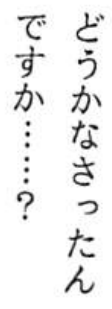 どうかなさったん
ですか……？